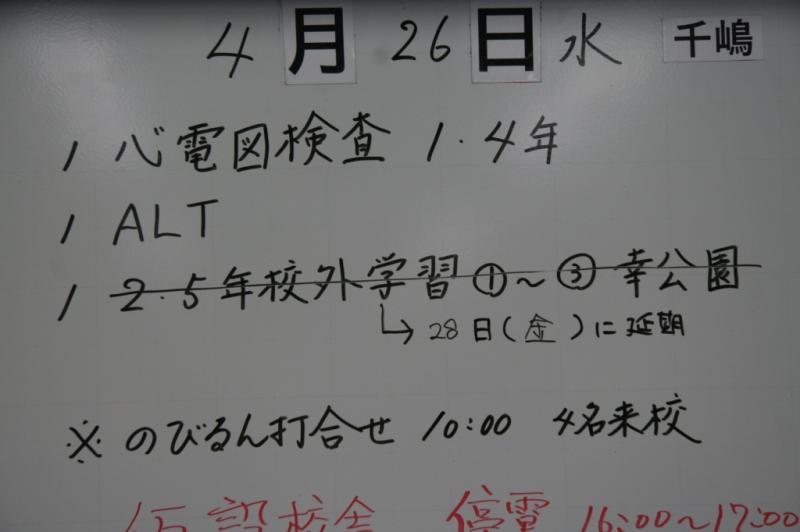 4月26日水 千嶋
1 心電図検査 1・4年
1 ALT
1 2・5年校外学習①～③幸公園
28日(金)に延期
※ のびるん打合せ 10:00 4名来校
仮設校舎 停電 16:00～17:00